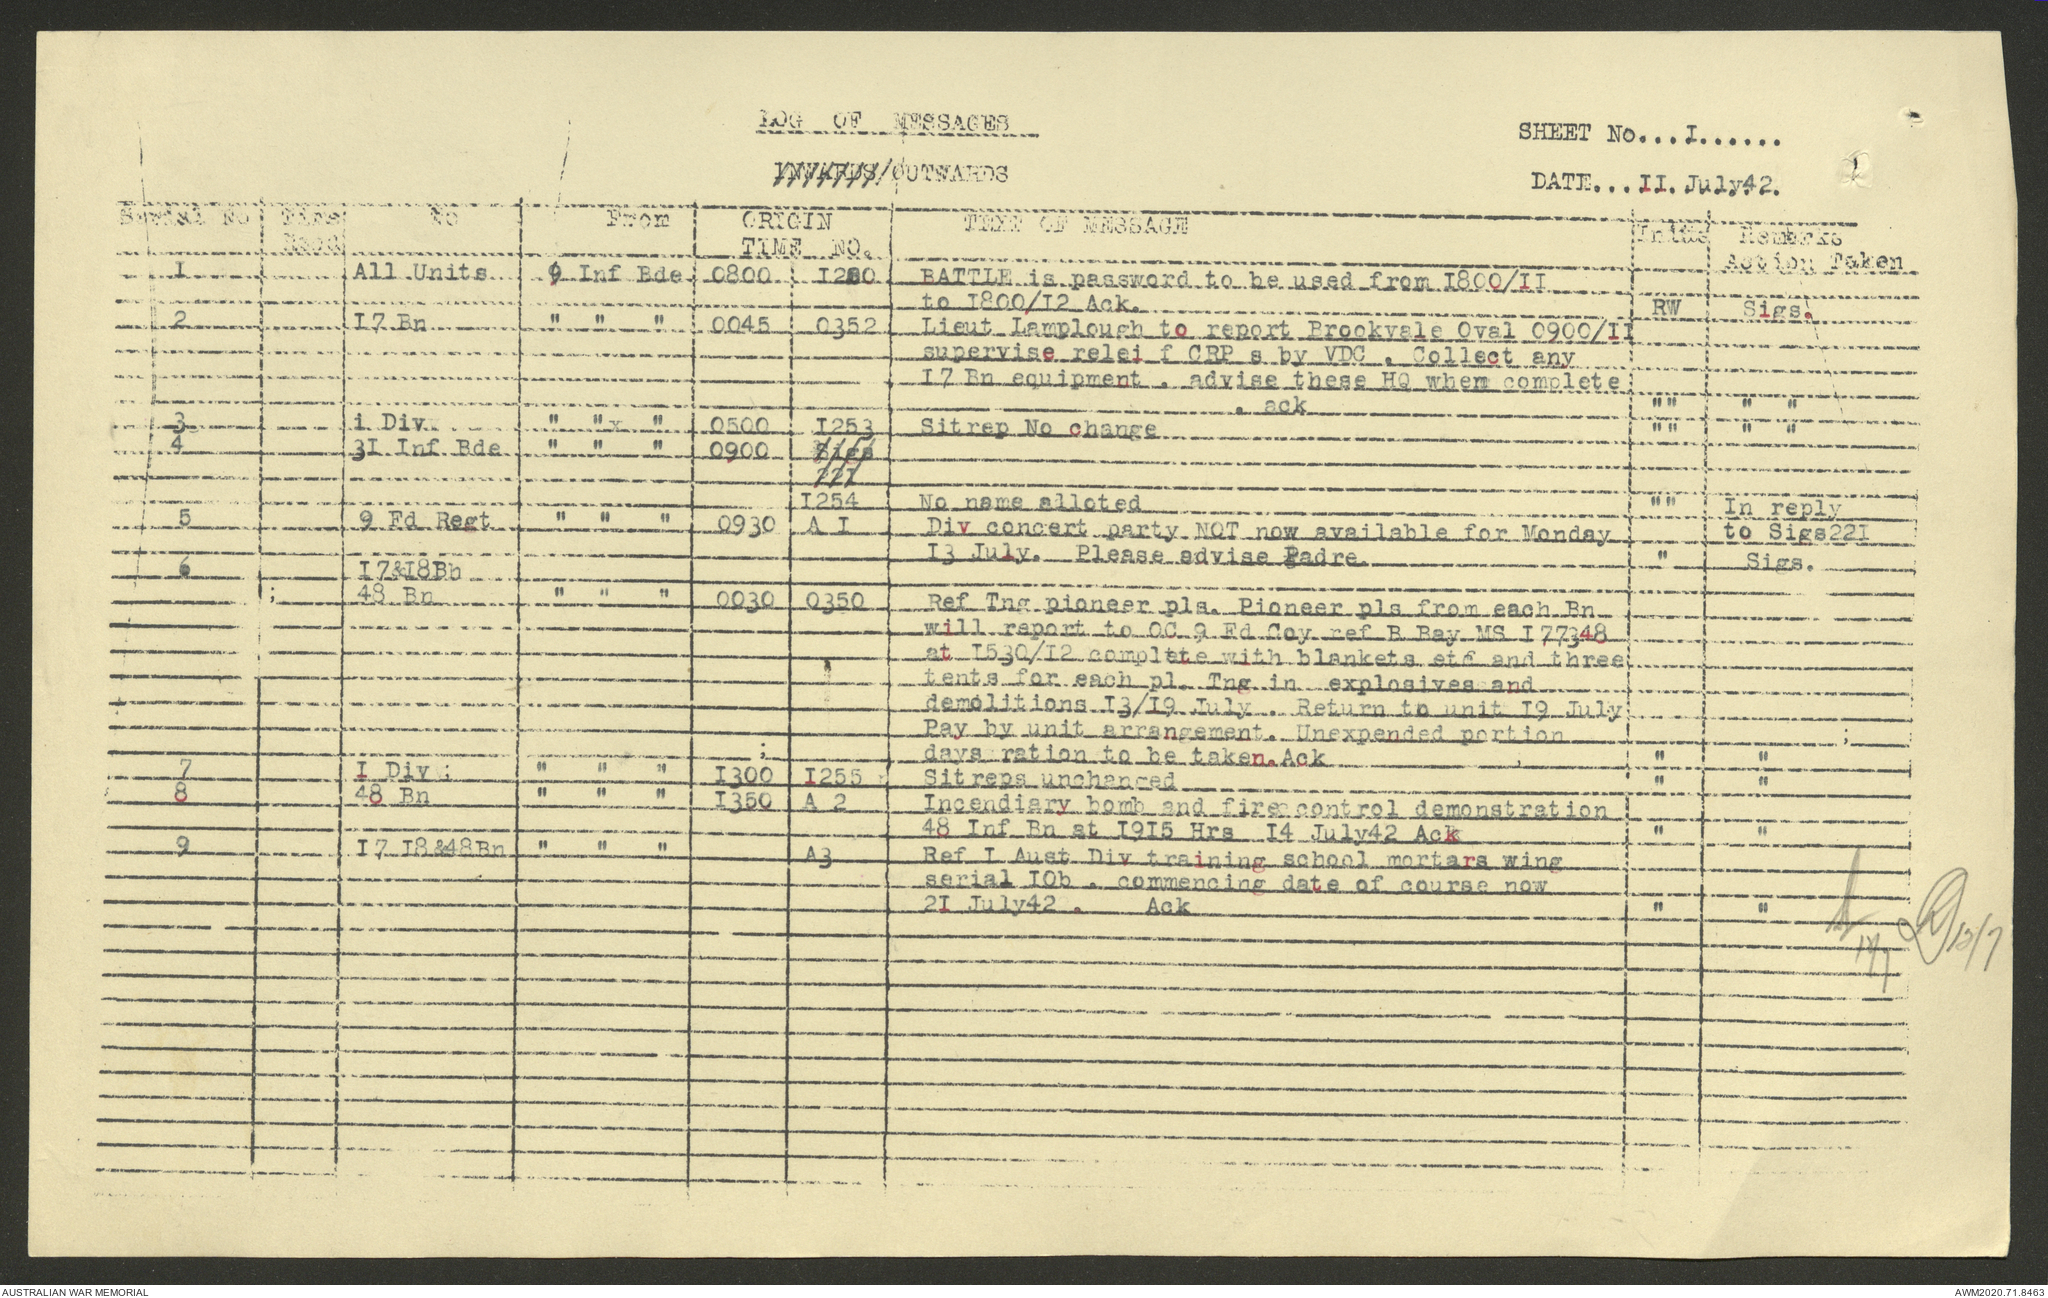 LOG OF MESSAGES
SHEET No...I......
INWARDS/OUTWARDS
DATE...II. July42.
Serial No Time To From ORIGIN TEXT OF MESSAGE Remarks
TIME NO. Action Taken
I All Units 9 Inf Bde 0800 BATTLE is password to be used from I800/II
to I800/I2 Ack. RW Sigs.
2 I7 Bn " " " 0045 0352 Lieut Lamplough to report Brookvale Oval 0900/II
supervise relei f CRP s by VDC . Collect any
I7 Bn equipment . advise these HQ when complete
. ack "" " "
3 i Div. " "x " 0500 I253 Sitrep No change "" " "
4 3I Inf Bde " " " 0900 Sigs
22I
I254 No name alloted "" In reply
5 9 Fd Regt " " " 0930 A I Div concert party NOT now available for Monday to Sigs22I
I3 July. Please advise Padre. " Sigs.
6 I7&I8Bb
; 48 Bn " " " 0030 0350 Ref Tng pioneer pls. Pioneer pls from each Bn
will report to OC 9 Fd Coy ref B Bay MS I77348
at I530/I2 complete with blankets etc and three
tents for each pl. Tng in explosives and
demolitions I3/I9 July . Return to unit I9 July
Pay by unit arrangement. Unexpended portion ;
; days ration to be taken.Ack " "
7 I Div : " " " I300 I255 Sitreps unchanged " "
8 48 Bn " " " I350 A 2 Incendiary bomb and fire control demonstration
48 Inf Bn at I9I5 Hrs I4 July42 Ack " "
9 I7 I8&48Bn " " " A3 Ref I Aust Div training school mortars wing
serial I0b . commencing date of course now
2I July42 . Ack " "
12/7
AUSTRALIAN WAR MEMORIAL
AWM2020.71.8463